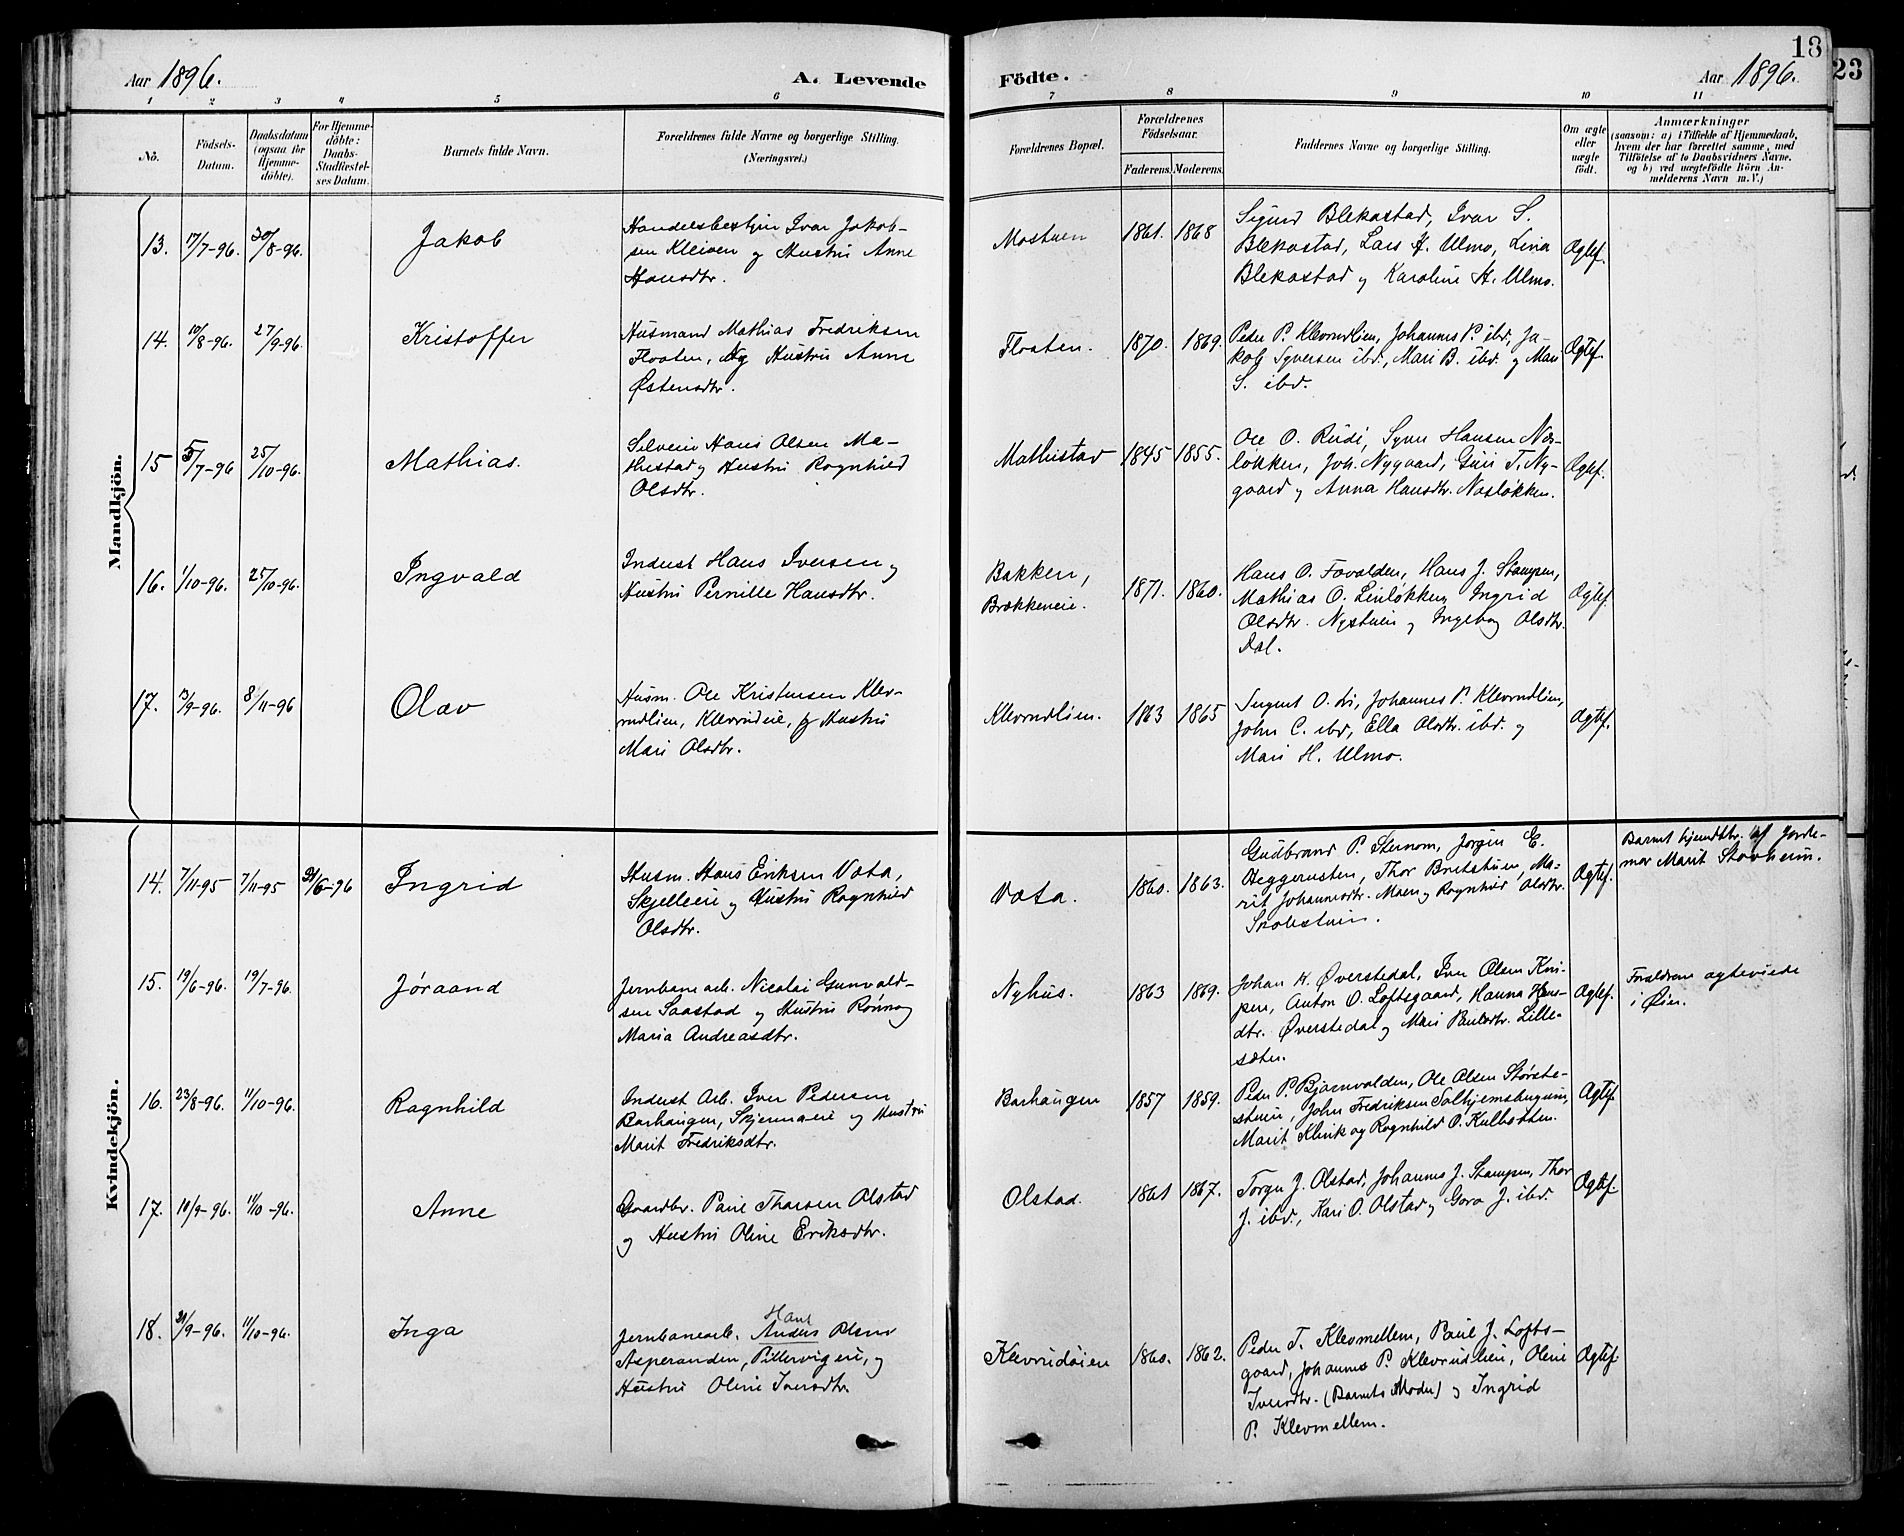 Aar 1896.
A. Levende Födte.
Aar 1896.
18
23
1 2 3 4 5 6 7 8 9 10 11
No.
Födsels-
Datum.
Daabsdatum
(ogsaa for
Hjemme-
döbte).
For Hjemme-
döbte:
Daabs-
Stadfæstel-
ses Datum.
Barnets fulde Navn.
Forældrenes fulde Navne og borgerlige Stilling.
(Næringsvei.)
Forældrenes Bopæl.
Forældrenes
Födselsaar.
Faderens. Moderens.
Faddernes Navne og borgerlige Stilling.
Om ægte
eller
uægte
födt.
Anmærkninger
(saasom: a) i Tilfælde af Hjemmedaab,
hvem der har forrettet samme, med
Tilföielse af to Daabsvidners Navne.
og b) ved uægtefödte Börn An-
melderens Navn m. V.)
Mandkjön.
13. 17/7-96. 30/8-96. Jakob
Handelsbestyrer Ivar Jakob-
sen Kleiven og Hustru Anne
Hansdtr.
Mostuen 1861. 1868
Sigurd Blekastad, Ivar S.
Blekastad, Lars H. Ulmo, Lina
Blekastad og Karoline H. Ulmo.
Ægtef.
14. 10/8-96. 27/9-96. Kristoffer
Husmand Mathias Fredriksen
Floaten, og Hustru Anne
Østensdtr.
Floaten. 1870. 1869.
Peder P. Klevrudlien, Johannes P. ibd., Ja-
kob Syversen ibd., Mari B. ibd. og Mari
S. ibd.
Ægtef.
15 5/7-96 25/10-96. Mathias.
Selveier Hans Olsen Ma-
thistad og Hustru Ragnhild
Olsdtr.
Mathistad 1845 1855.
Ole O. Rudi, Syver Hansen Nor-
løkken, Joh. Nygaard, Guri T. Ny-
gaard og Anna Hansdtr. Nosløkken.
Ægtef.
16. 1/10-96. 25/10-96. Ingvald
Inderst Hans Iversen og
Hustru Pernille Hansdtr.
Bakken,
Brækkeneie.
1871. 1860.
Hans O. Favolden, Hans J. Stampen,
Mathias O. Linløkken, Ingrid
Olsdtr. Nystuen og Ingeborg Olsdtr.
Dal.
Ægtef.
17. 13/9-96. 8/11-96 Olav
Husm. Ole Kristensen Klev-
rudlien, Klevrudeie, og Hustru
Mari Olsdtr.
Klevrudlien. 1863 1865
O. Li, Johannes P. Klevrudlien,
John C. ibd, Ella Olsdtr. ibd. og
Mari H. Ulmo.
Ægtef.
Kvindekjön.
14. 7/11-95 7/11-95 21/6-96 Ingrid
Husm. Hans Eriksen Vata,
Skjelleeie og Hustru Ragnhild
Olsdtr.
Vata. 1860. 1863.
Gudbrand P. Sternom, Jørgen E.
Heggerusten, Thor Bretstuen, Ma-
rit Johannesdtr. Moen og Ragnhild Olsdtr.
Skolestuen.
Ægtef.
Barnet hjemdøbt. af Jorde-
mor Marit Stavheim.
15. 19/6-96. 19/7-96. Jøraand
Jernbanearb. Nicolai Gunvald-
sen Saastad og Hustru Rønnog
Maria Andreasdtr.
Nyhus. 1863 1869.
Johan K. Øverstedal, Iver Olsen Kni-
pen, Anton O. Loftsgaard, Hanna Hans-
dtr. Øverstedal og Mari Paulsdtr. Lille-
sæter.
Ægtef.
Forældrene ægteviede
i Øien.
16. 23/8-96. 11/10-96. Ragnhild
Inderst Arb. Iver Pedersen
Barhaugen, Skjennaeie og Hustru
Marit Fredriksdtr.
Barhaugen 1857 1859.
Peder P. Bjørnvolden, Ole Olsen Største-
stuen, John Fredriksen Solhjemshugum,
Marit Klevik og Ragnhild O. Kulbotten.
Ægtef.
17. 10/9-96. 11/10-96. Anne
Gaardbr. Paul Thorsen Olstad
og Hustru Oline Eriksdtr.
Olstad. 1861 1867.
Torger J. Olstad, Johannes J. Stampen, Thor
J. ibd., Kari O. Olstad og Goro J. ibd
Ægtef.
18. 21/9-96. 11/10-96. Inga
Hans
Jernbanearb. Anders Olsen
Asperanden, Pillervigeie, og
Hustru Oline Iversdtr.
Klevrudøien 1860. 1862.
Peder T. Klevmellem, Paul J. Lofts-
gaard, Johannes P. Klevrudlien, Oline
Iversdtr. (Barnets Moder) og Ingrid
P. Klevmellem.
Ægtef.